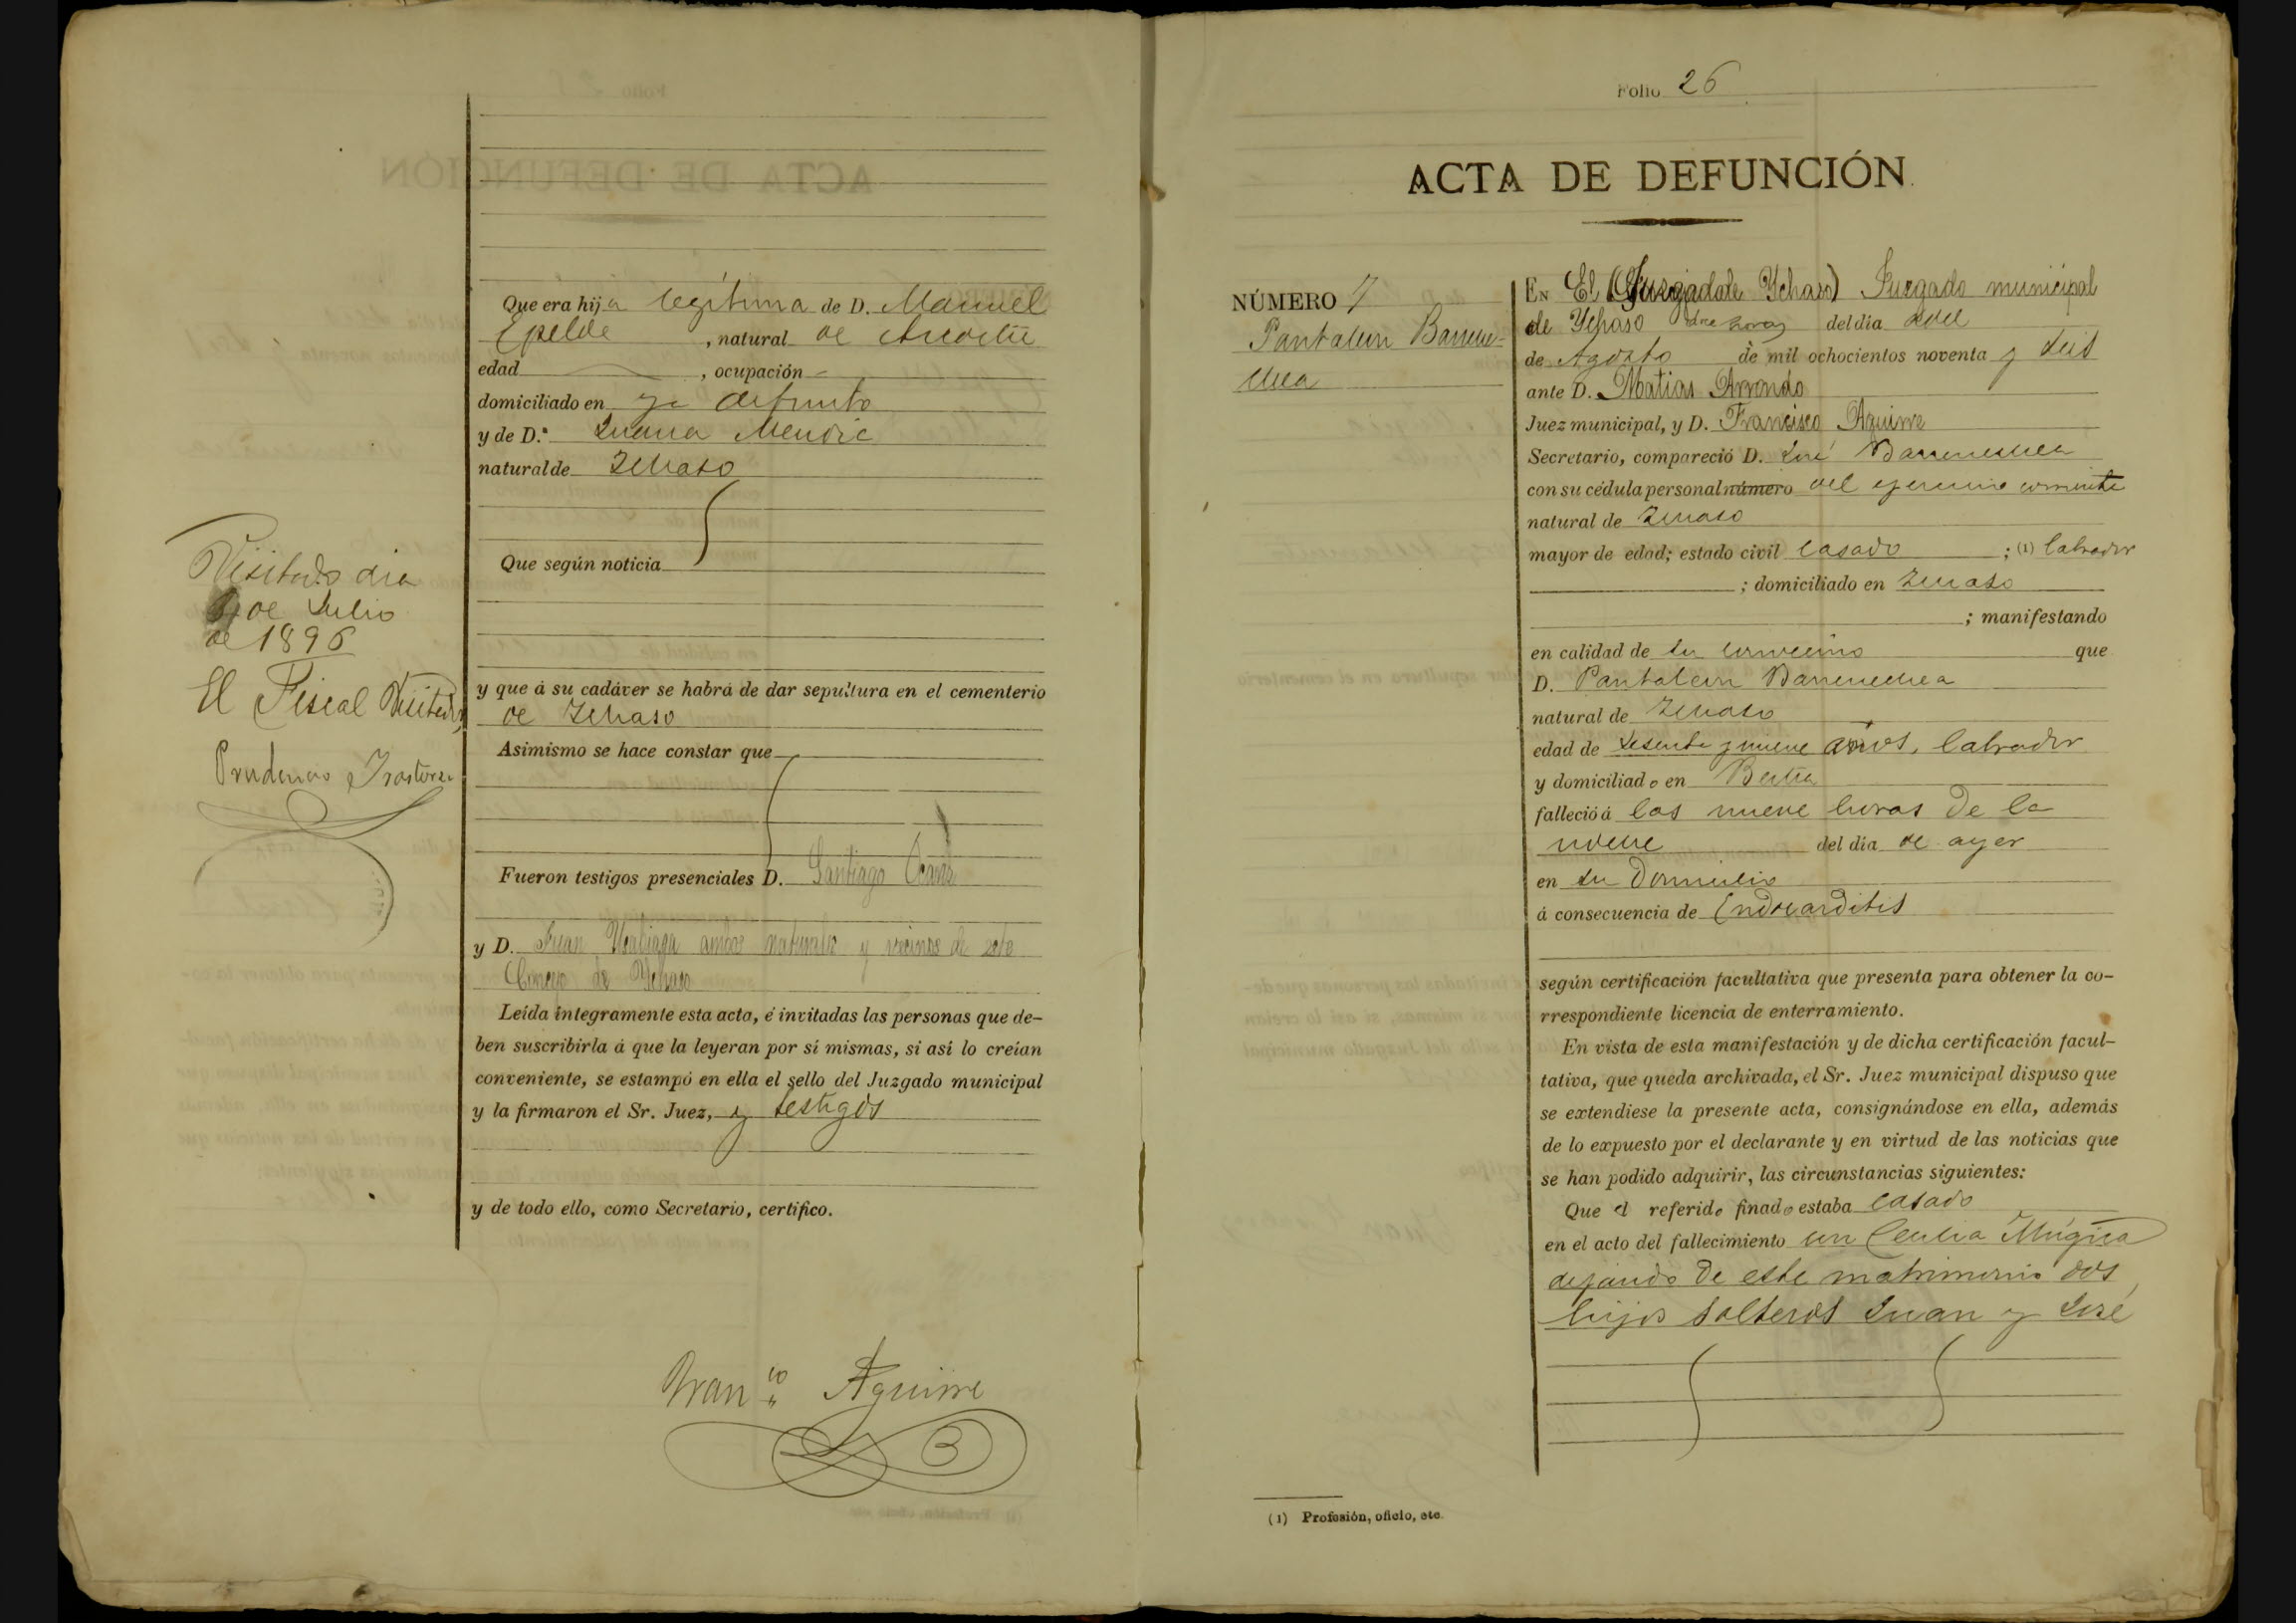 Que era hija legítima de D. Manuel
Epelde, natural de Azcoitia
edad, ocupación
domiciliado en ya difunto
y de D.ª Juana Mendia
natural de Ichaso
Que según noticia
y que á su cadáver se habrá de dar sepultura en el cementerio
de Ichaso
Asimismo se hace constar que
Fueron testigos presenciales D. Santiago
y D. Juan ambos naturales y vecinos de este
Concejo de Ychaso
Leída íntegramente esta acta, é invitadas las personas que de-
ben suscribirla á que la leyeran por sí mismas, si así lo creían
conveniente, se estampó en ella el sello del Juzgado municipal
y la firmaron el Sr. Juez, y testigos
y de todo ello, como Secretario, certifico.
Visitado dia
de Julio
de 1896
El Fiscal Visitador
Prudencio
Fran.co Aguirre
Folio 26
ACTA DE DEFUNCIÓN
NÚMERO 7
Pantaleon Barrene-
chea
En El (Juzgado de Ychaso) Juzgado municipal
de Ychaso horas del dia
de Agosto de mil ochocientos noventa y seis
ante D. Matias Arrondo
Juez municipal, y D. Francisco Aguirre
Secretario, compareció D. José Barrenechea
con su cédula personal número del ejercicio corriente
natural de Ichaso
mayor de edad; estado civil casado ; (1) labrador
; domiciliado en Ichaso
; manifestando
en calidad de su convecino que
D. Pantaleon Barrenechea
natural de Ichaso
edad de sesenta y nueve años, labrador
y domiciliado en
falleció á las nueve horas de la
noche del dia de ayer
en su domicilio
á consecuencia de Endocarditis
según certificación facultativa que presenta para obtener la co-
rrespondiente licencia de enterramiento.
En vista de esta manifestación y de dicha certificación facul-
tativa, que queda archivada, el Sr. Juez municipal dispuso que
se extendiese la presente acta, consignándose en ella, además
de lo expuesto por el declarante y en virtud de las noticias que
se han podido adquirir, las circunstancias siguientes:
Que el referido finado estaba casado
en el acto del fallecimiento con Cecilia Múgica
dejando de este matrimonio dos
hijos solteros Juan y José
(1) Profesión, oficio, etc.